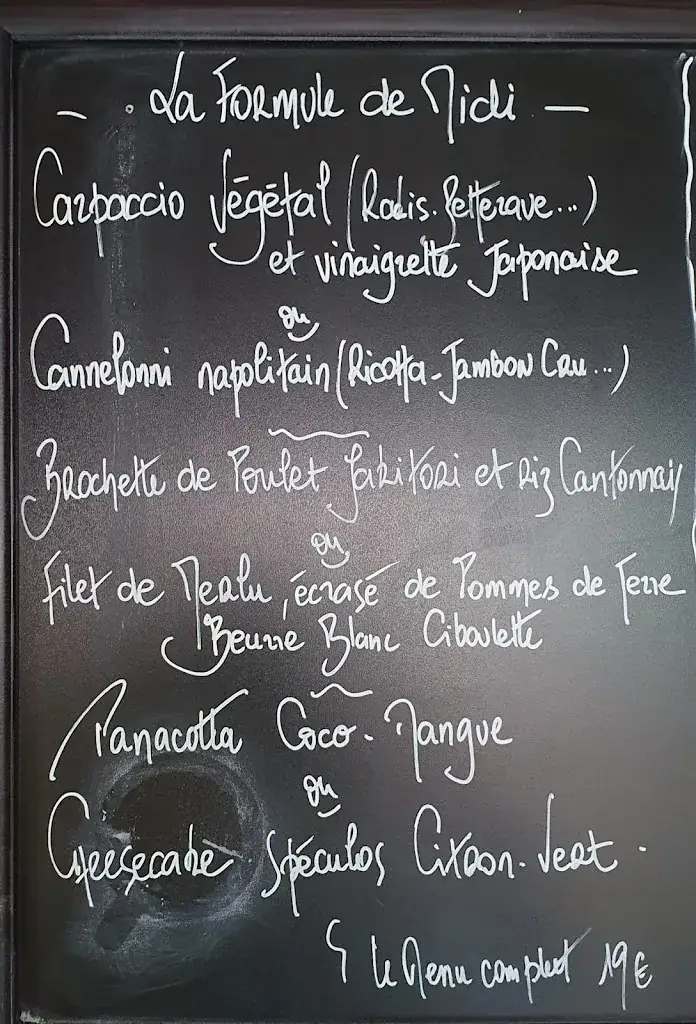 - . La Formule de Midi -
Carpaccio Végétal (Radis. Betterave...)
et vinaigrette Japonaise
ou
Cannelonni napolitain (Ricotta - Jambon Cru...)
Brochette de Poulet Yakitori et Riz Cantonnais
ou
Filet de Merlu, écrasé de Pommes de Terre
Beurre Blanc Ciboulette
Panacotta Coco. Mangue
ou
Cheesecake Spéculos Citron. Vert.
le Menu complet 19€